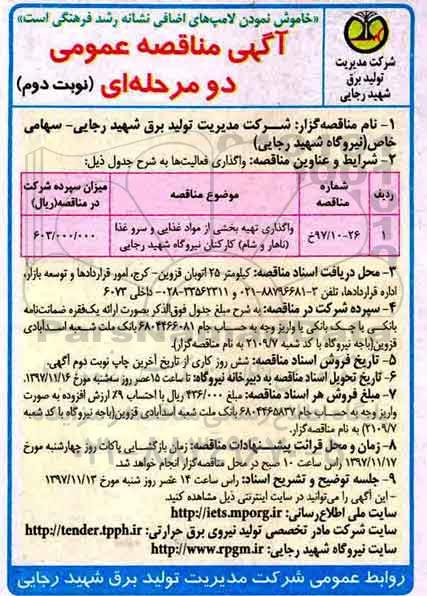 «خاموش نمودن لامپ‌های اضافی نشانه رشد فرهنگی است»
آگهی مناقصه عمومی
دو مرحله‌ای (نوبت دوم)
شرکت مدیریت
تولید برق
شهید رجایی
۱- نام مناقصه‌گزار: شــرکت مدیریت تولید برق شهید رجایی- سهامی
خاص(نیروگاه شهید رجایی)
۲- شرایط و عناوین مناقصه: واگذاری فعالیت‌ها به شرح جدول ذیل:
ردیف شماره مناقصه موضوع مناقصه میزان سپرده شرکت در مناقصه(ریال)
۱ ۹۷/۱۰-۲۶خ واگذاری تهیه بخشی از مواد غذایی و سرو غذا (ناهار و شام) کارکنان نیروگاه شهید رجایی ۶۰۳/۰۰۰/۰۰۰
۳- محل دریافت اسناد مناقصه: کیلومتر ۲۵ اتوبان قزوین- کرج، امور قراردادها و توسعه بازار،
اداره قراردادها، تلفن ۳-۸۸۷۹۶۶۸۱-۰۲۱ و ۳۳۵۶۲۳۱۱-۰۲۸- داخلی ۶۰۷۳
۴- سپرده شرکت در مناقصه: به شرح مبلغ جدول فوق‌الذکر بصورت ارائه یک‌فقره ضمانت‌نامه
بانکــی یا چــک بانکی یا واریز وجه به حساب جام ۶۸۰۴۴۶۶۰۸۱ بانک ملت شــعبه اســدآبادی
قزوین(باجه نیروگاه با کد شعبه ۲۱۰۹/۷ به نام مناقصه‌گزار).
۵- تاریخ فروش اسناد مناقصه: شش روز کاری از تاریخ آخرین چاپ نوبت دوم آگهی.
۶- تاریخ تحویل اسناد مناقصه به دبیرخانه نیروگاه: تا ساعت ۱۵عصر روز سه‌شنبه مورخ ۱۳۹۷/۱۱/۱۶.
۷- مبلغ فروش هر اسناد مناقصه: مبلغ ۴۳۶/۰۰۰ ریال با احتساب ۹٪ ارزش افزوده به صورت
واریز وجه به حساب جام ۶۸۰۴۴۶۵۸۳۷ بانک ملت شعبه اسدآبادی قزوین(باجه نیروگاه با کد شعبه
۲۱۰۹/۷) به نام مناقصه‌گزار.
۸- زمان و محل قرائت پیشــنهادات مناقصه: زمان بازگشــایی پاکات روز چهارشنبه مورخ
۱۳۹۷/۱۱/۱۷ راس ساعت ۱۰ صبح در محل مناقصه‌گزار انجام خواهد شد.
۹- جلسه توضیح و تشریح اسناد: راس ساعت ۱۴ عصر روز شنبه مورخ ۱۳۹۷/۱۱/۱۳
- این آگهی را می‌توانید در سایت اینترنتی ذیل مشاهده کنید.
سایت ملی اطلاع‌رسانی: http://iets.mporg.ir
سایت شرکت مادر تخصصی تولید نیروی برق حرارتی: http://tender.tpph.ir
سایت نیروگاه شهید رجایی: http://www.rpgm.ir
روابط عمومی شرکت مدیریت تولید برق شهید رجایی